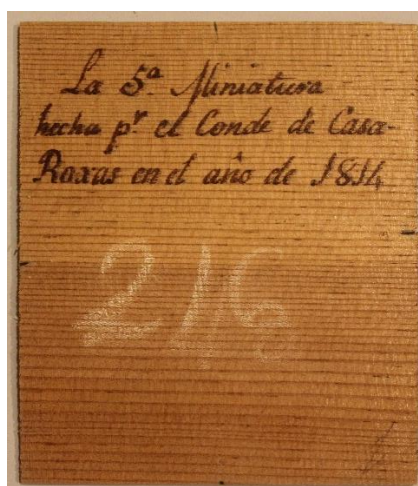 La 5ª Miniatura
hecha pʳ el Conde de Casa-
Roxas en el año de 1814
246